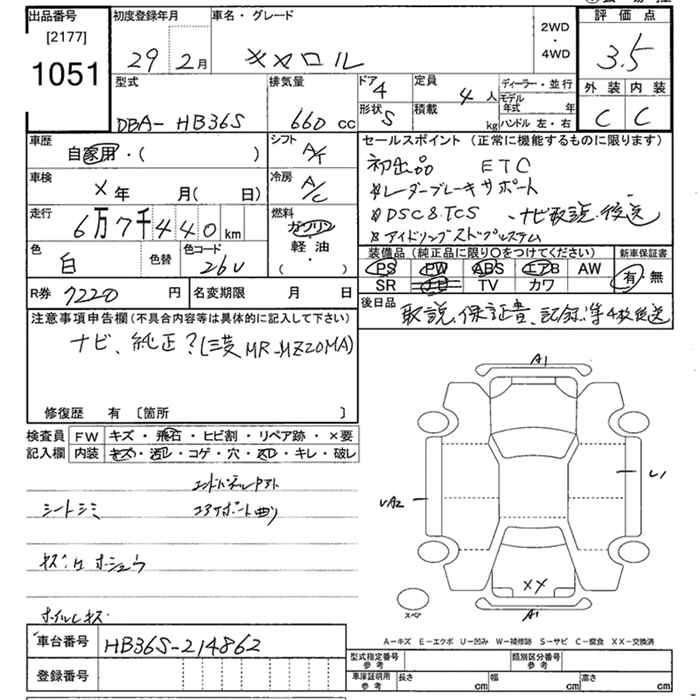 出品番号
[2177]
1051
初度登録年月
29年2月
車名・グレード
キャロル
2WD
・
4WD
評価点
3.5
外装 内装
C C
型式
DBA-HB36S
排気量
660 cc
ドア
4
形状
S
定員
4人
積載
kg
ディーラー・並行
モデル年式 年
ハンドル 左・右
車歴
自家用・( )
シフト
A/T
車検
× 年 月( 日)
冷房
A/C
走行
6万7千440km
燃料
ガソリン
軽油
( )
色
白
色替
色コード
26U
R券 7220 円
名変期限 月 日
セールスポイント (正常に機能するものに限ります)
初出品 ETC
*レーダーブレーキサポート
*DSC&TCS ・ナビ取説.後送
*アイドリングストップシステム
装備品 (純正品に限り○をつけてください)
新車保証書
PS PW ABS エアB AW
SR TV カワ
有・無
後日品
取説、保証書、記録簿4枚後送
注意事項申告欄(不具合内容等は具体的に記入して下さい)
ナビ、純正?(三菱MR-MZ20MA)
修復歴 有 〔箇所 〕
検査員
記入欄
FW キズ・飛石・ヒビ割・リペア跡・×要
内装 キズ・汚レ・コゲ・穴・スレ・キレ・破レ
シートシミ
コアサポート曲り
キズ有 ホシュウ
ホイルキズ
A1
U1
UA2
XX
A1
スペア
A-キズ E-エクボ U-凹み W-補修跡 S-サビ C-腐食 XX-交換済
車台番号 HB36S-214862
登録番号
型式指定番号 参考
類別区分番号 参考
車庫証明用 参考
長さ cm
幅 cm
高さ cm